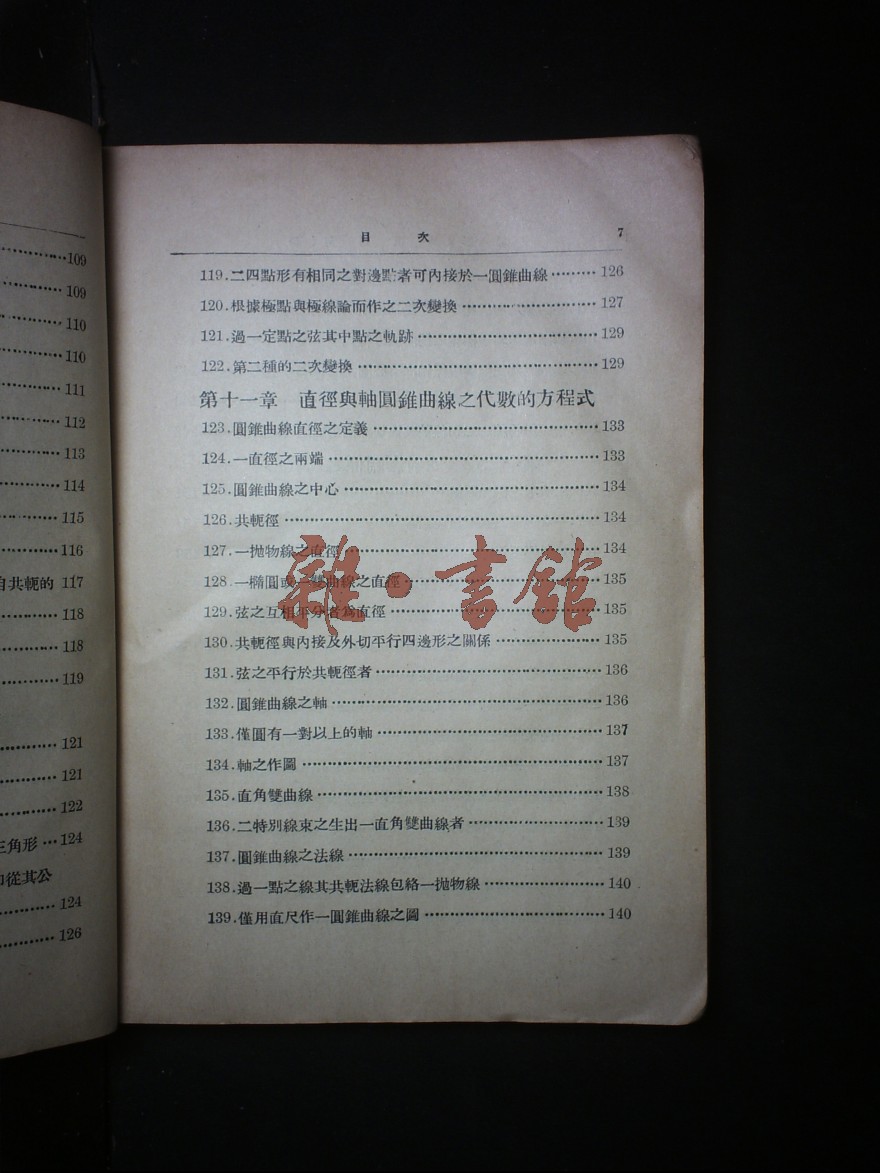 109
109
110
110
111
112
113
114
115
116
自共軛的 117
118
118
119
121
121
122
三角形 … 124
從其公
124
126
目 次 7
119.二四點形有相同之對邊點者可內接於一圓錐曲線 ……… 126
120.根據極點與極線論而作之二次變換 ……… 127
121.過一定點之弦其中點之軌跡 ……… 129
122.第二種的二次變換 ……… 129
第十一章 直徑與軸圓錐曲線之代數的方程式
123.圓錐曲線直徑之定義 ……… 133
124.一直徑之兩端 ……… 133
125.圓錐曲線之中心 ……… 134
126.共軛徑 ……… 134
127.一拋物線之直徑 ……… 134
128.一橢圓或一雙曲線之直徑 ……… 135
129.弦之互相平分者爲直徑 ……… 135
130.共軛徑與內接及外切平行四邊形之關係 ……… 135
131.弦之平行於共軛徑者 ……… 136
132.圓錐曲線之軸 ……… 136
133.僅圓有一對以上的軸 ……… 137
134.軸之作圖 ……… 137
135.直角雙曲線 ……… 138
136.二特別線束之生出一直角雙曲線者 ……… 139
137.圓錐曲線之法線 ……… 139
138.過一點之線其共軛法線包絡一拋物線 ……… 140
139.僅用直尺作一圓錐曲線之圖 ……… 140
雜·書館